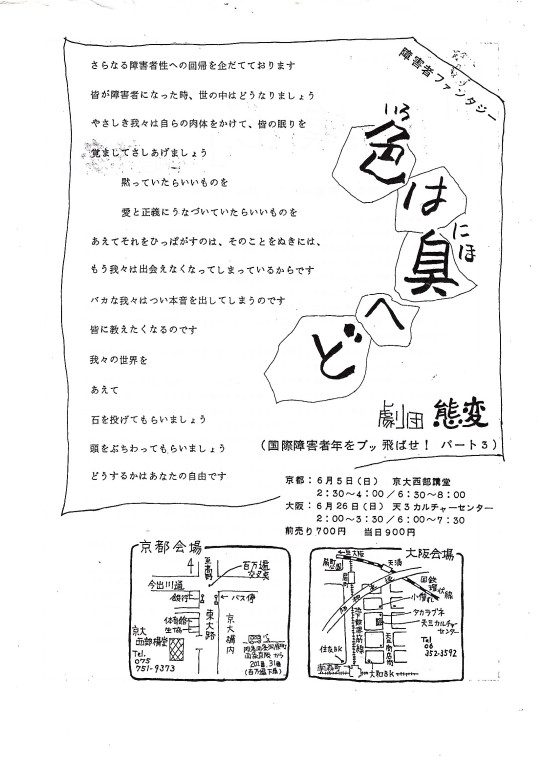 障害者ファンタジー
いろ
色は
にほ
臭へ
ど
劇団 態変
(国際障害者年をブッ飛ばせ! パート3)
さらなる障害者性への回帰を企だてております
皆が障害者になった時、世の中はどうなりましょう
やさしき我々は自らの肉体をかけて、皆の眠りを
覚ましてさしあげましょう
黙っていたらいいものを
愛と正義にうなづいていたらいいものを
あえてそれをひっぱがすのは、そのことをぬきには、
もう我々は出会えなくなってしまっているからです
バカな我々はつい本音を出してしまうのです
皆に教えたくなるのです
我々の世界を
あえて
石を投げてもらいましょう
頭をぶちわってもらいましょう
どうするかはあなたの自由です
京都:6月5日(日) 京大西部講堂
2:30~4:00/6:30~8:00
大阪:6月26日(日) 天3カルチャーセンター
2:00~3:30/6:00~7:30
前売り700円 当日900円
京都会場
至高野
百万遍
交叉点
今出川通
銀行
バス停
体育館
生協
東大路
京大構内
京大
西部構堂
Tel.
075
751-9373
バス
から
201番、31番
(百万遍下車)
大阪会場
天満
扇町
公園
扇町
国鉄
環状線
タカラブネ
天三カルチャー
センター
Tel
06
352-3592
住友BK
南森町
大和BK